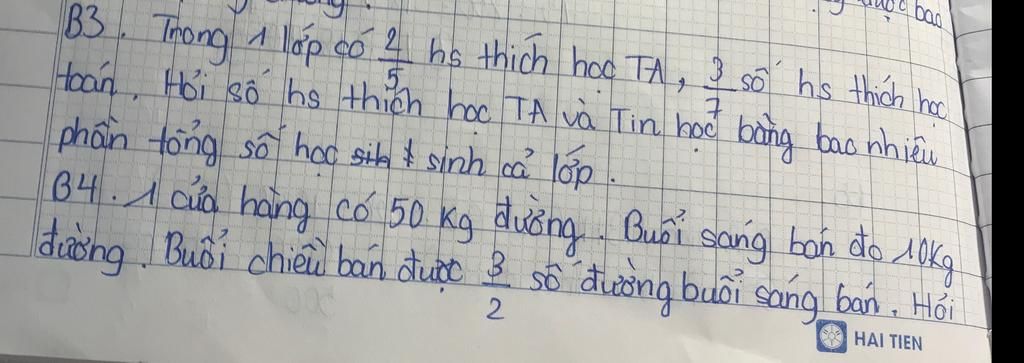 được bao
B3. Trong 1 lớp có 2/5 hs thích học TA, 3/7 số hs thích học
toán. Hỏi số hs thích học TA và Tin học bằng bao nhiêu
phần tổng số học sinh cả lớp.
B4. 1 cửa hàng có 50 Kg đường. Buổi sáng bán đo 10kg
đường. Buổi chiều bán được 3/2 số đường buổi sáng bán. Hỏi
HAI TIEN